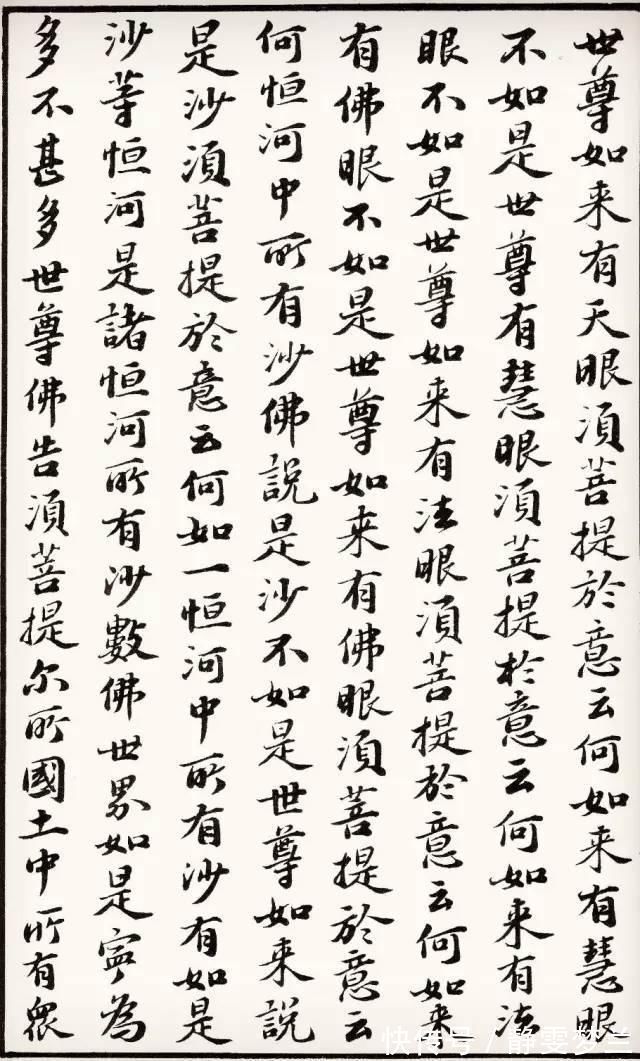 世尊如来有天眼須菩提於意云何如来有慧眼
不如是世尊有慧眼須菩提於意云何如来有法
眼不如是世尊如来有法眼須菩提於意云何如来
有佛眼不如是世尊如来有佛眼須菩提於意云
何恒河中所有沙佛說是沙不如是世尊如来說
是沙須菩提於意云何如一恒河中所有沙有如是
沙等恒河是諸恒河所有沙數佛世界如是寧為
多不甚多世尊佛告須菩提尔所國土中所有眾
快传号/静雯